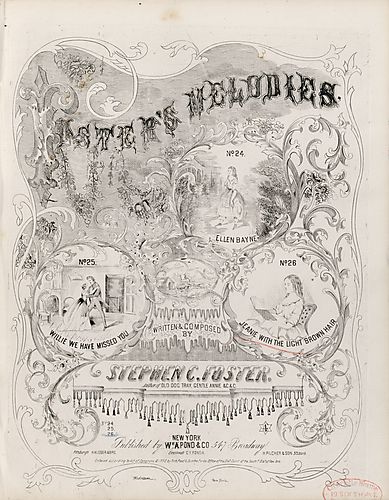 FOSTER'S MELODIES.
No 24.
ELLEN BAYNE
No 25.
WILLIE WE HAVE MISSED YOU
No 26
JEANIE WITH THE LIGHT BROWN HAIR
WRITTEN & COMPOSED
BY
STEPHEN C. FOSTER.
Author of OLD DOG TRAY, GENTLE ANNIE &C &C
24.
25.
26.
NEW YORK
Published by Wm A. POND & CO 547 Broadway
Pittsburgh H. KLEBER & BRO. Cincinnati C.Y. FONDA. PILCHER & SON